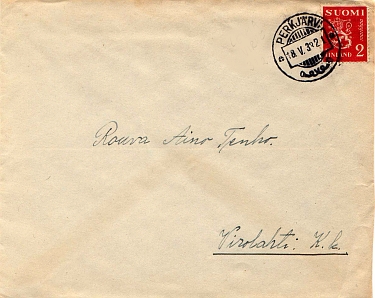 PERKJÄRVI
18.V.32
SUOMI
FINLAND 2
Rouva Aino Tenho.
Virolahti: K.k.